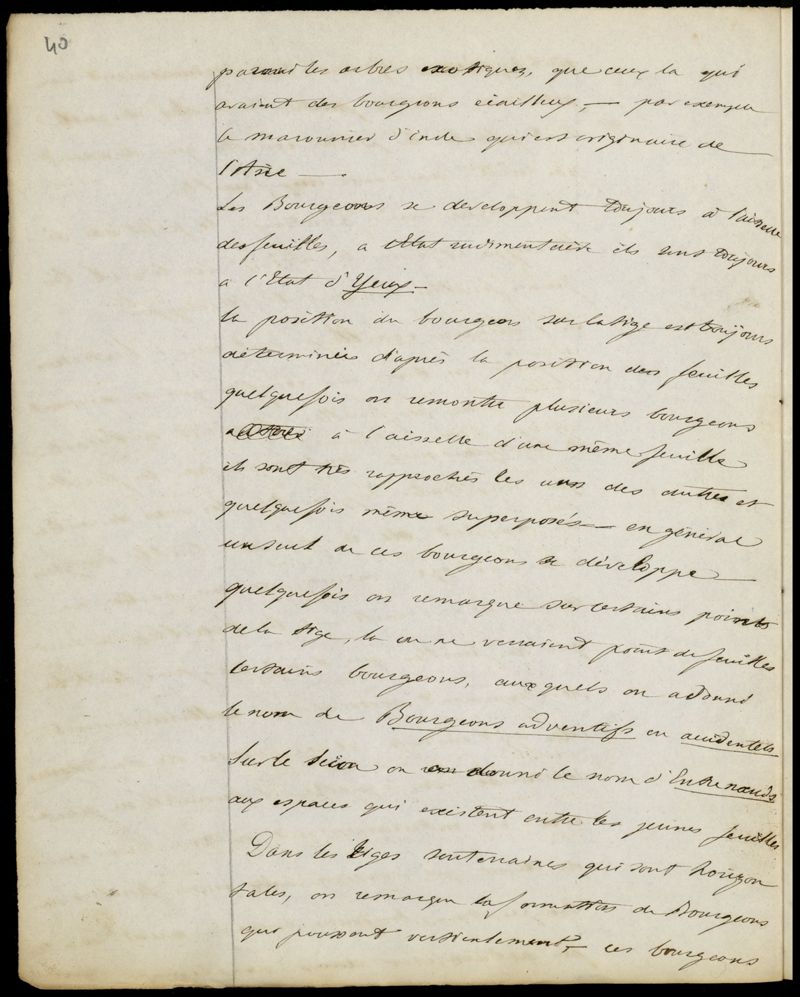 40
parmi les arbres exotiques, que ceux la qui
avaient des bourgeons écailleux, — par exemple
le maronnier d'inde qui est originaire de
l'Asie — .
Les Bourgeons se developpent toujours à l'aisselle
des feuilles, a l'Etat rudimentaire ils sont toujours
a l'Etat d'Yeux —
la position du bourgeons sur la tige est toujours
déterminée d'après la position des feuilles
quelquefois on remontre plusieurs bourgeons
à l'aisselle d'une même feuille
ils sont très rapprochés les uns des autres et
quelquefois même superposés — en général
un seul de ces bourgeons se développe —
quelquefois on remarque sur certains points
de la tige, la ou ne venaient point de feuilles
certains bourgeons, auxquels on a donné
le nom de Bourgeons adventifs ou accidentels
Sur le on donné le nom d'Entrenœuds
aux espaces qui existent entre les jeunes feuilles
Dans les tiges souterraines qui sont horizon
tales, on remarque la formation de Bourgeons
qui poussent verticalement, — ces bourgeons